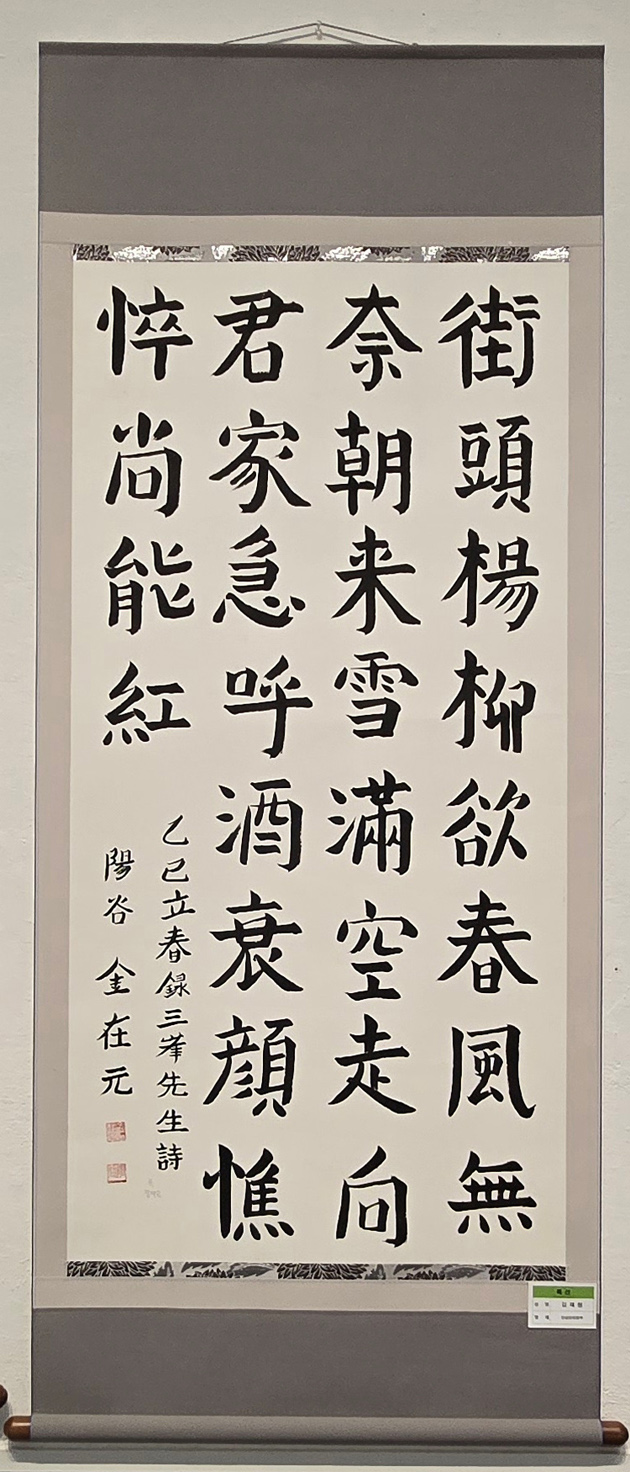 街頭楊柳欲春風無
奈朝来雪滿空走向
君家急呼酒衰顔憔
悴尚能紅
乙巳立春録三峯先生詩
陽谷 金在元
특선
김재원